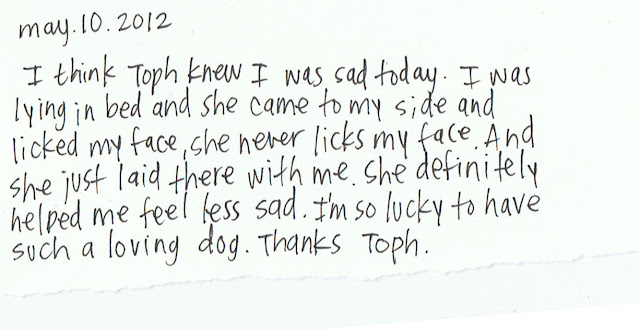 may.10.2012
I think Toph knew I was sad today. I was
lying in bed and she came to my side and
licked my face, she never licks my face. And
she just laid there with me. She definitely
helped me feel less sad. I'm so lucky to have
such a loving dog. Thanks Toph.